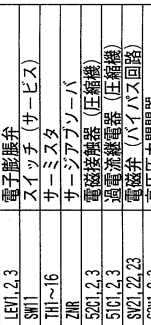 LEV1,2,3 電子膨脹弁
SW11 スイッチ (サービス)
TH1～16 サーミスタ
ZNR サージアブソーバ
52C1,2,3 電磁接触器 (圧縮機)
51C1,2,3 過電流継電器 (圧縮機)
SV21,22,23 電磁弁 (バイパス回路)